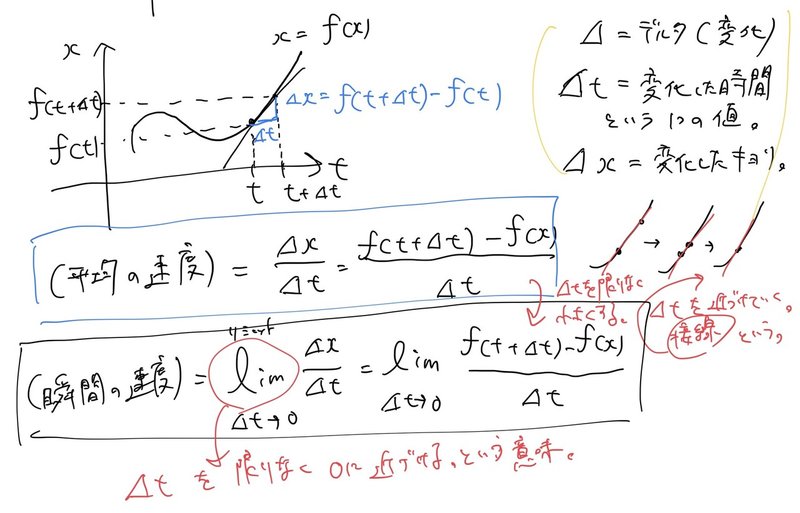 x
x = f(x)
f(t+Δt)
f(t)
Δx = f(t+Δt) - f(t)
Δt
t
t
t+Δt
Δ = デルタ(変化)
Δt = 変化した時間
という1つの値。
Δx = 変化したキョリ。
(平均の速度) = Δx/Δt = f(t+Δt) - f(x)/Δt
Δtを限りなく
小さくする。
→ →
Δtを近づけていく。
接線 という。
リミット
(瞬間の速度) = lim Δt→0 Δx/Δt = lim Δt→0 f(t+Δt)-f(x)/Δt
Δt を 限りなく 0に近づける、という意味。